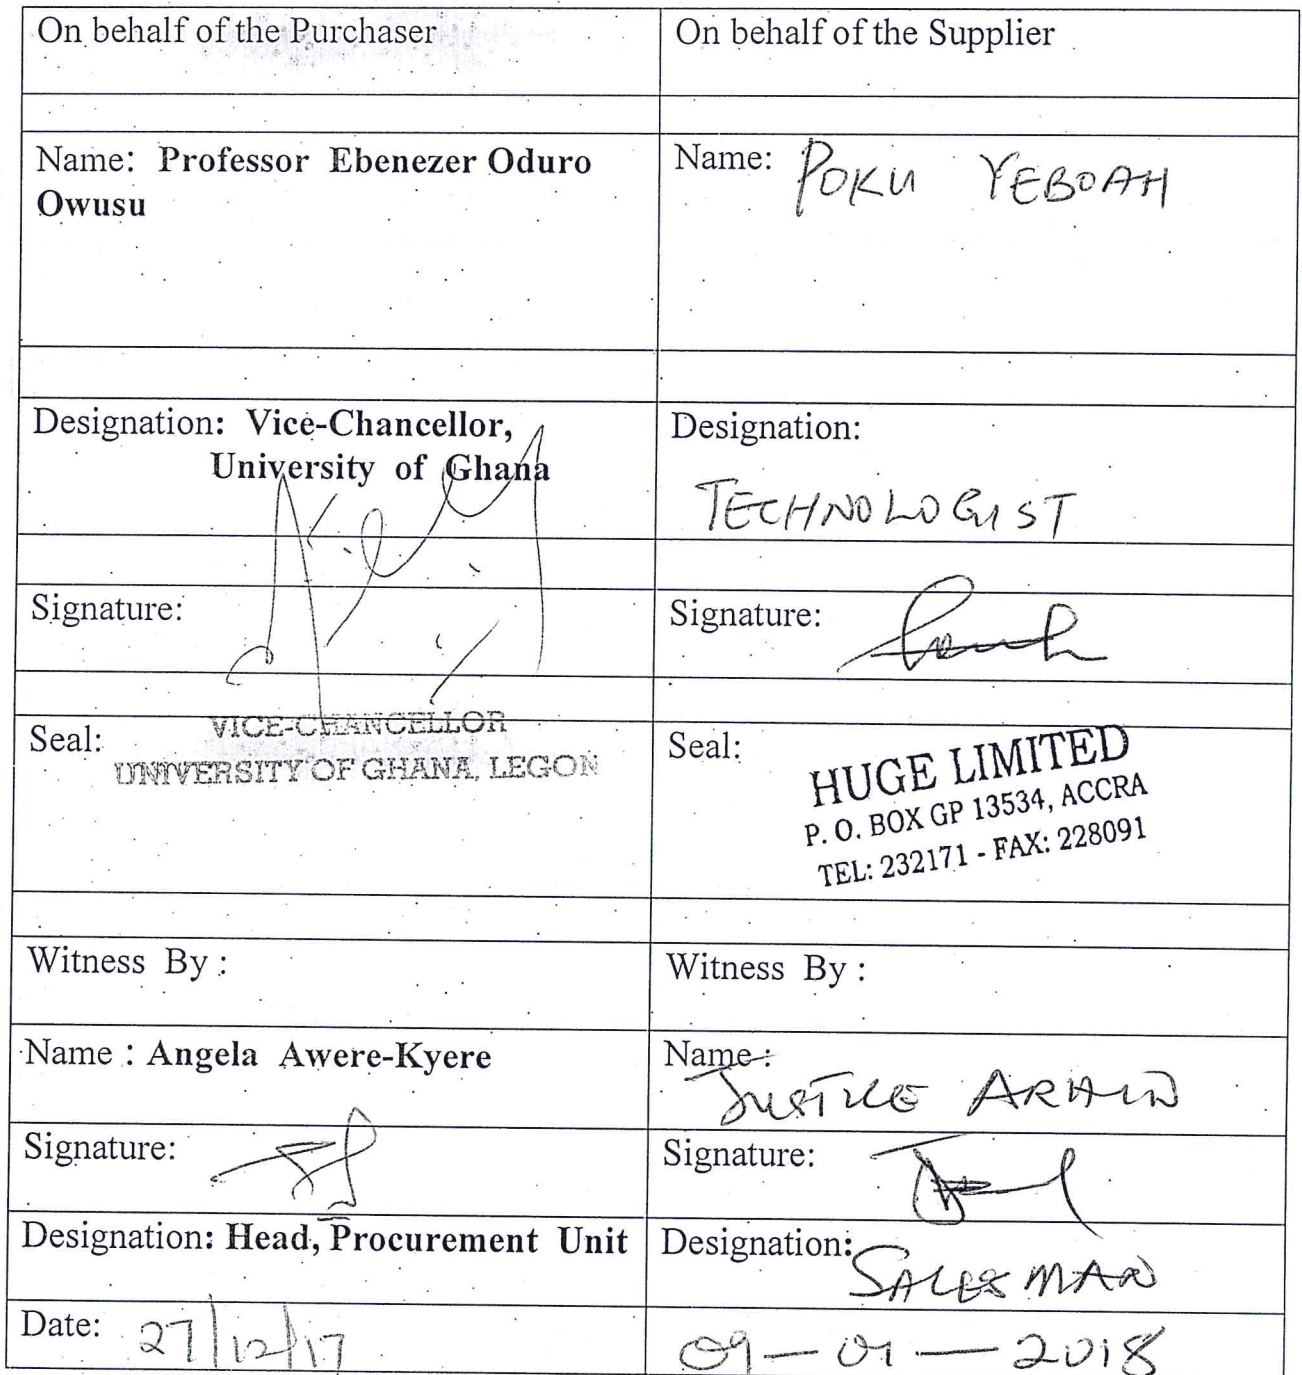 On behalf of the Purchaser
On behalf of the Supplier
Name: Professor Ebenezer Oduro
Owusu
Name: POKU YEBOAH
Designation: Vice-Chancellor,
University of Ghana
Designation:
TECHNOLOGIST
Signature:
Signature:
Seal:
VICE-CHANCELLOR
UNIVERSITY OF GHANA, LEGON
Seal:
HUGE LIMITED
P. O. BOX GP 13534, ACCRA
TEL: 232171 - FAX: 228091
Witness By :
Witness By :
Name : Angela Awere-Kyere
Name :
JUSTICE ARHIN
Signature:
Signature:
Designation: Head, Procurement Unit
Designation:
SALESMAN
Date: 27/12/17
09-01-2018